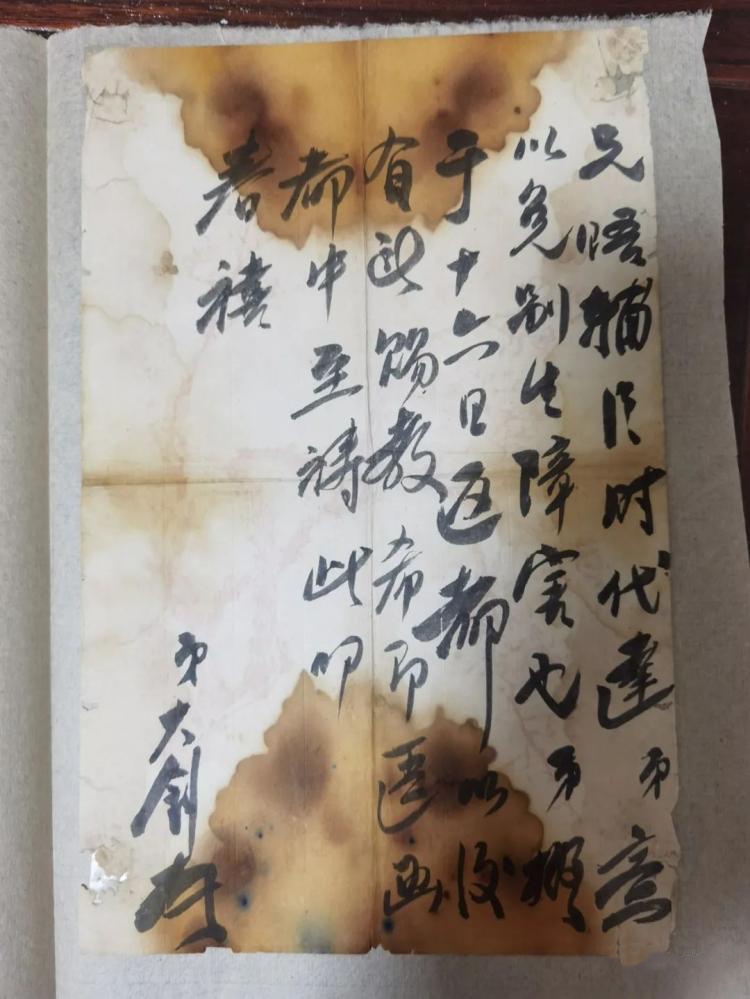 兄晤輔臣时代達弟意
以免别生障害也弟擬
于十六日返都以後
有所賜教希即逕函
都中至祷此叩
春禧
弟大釗